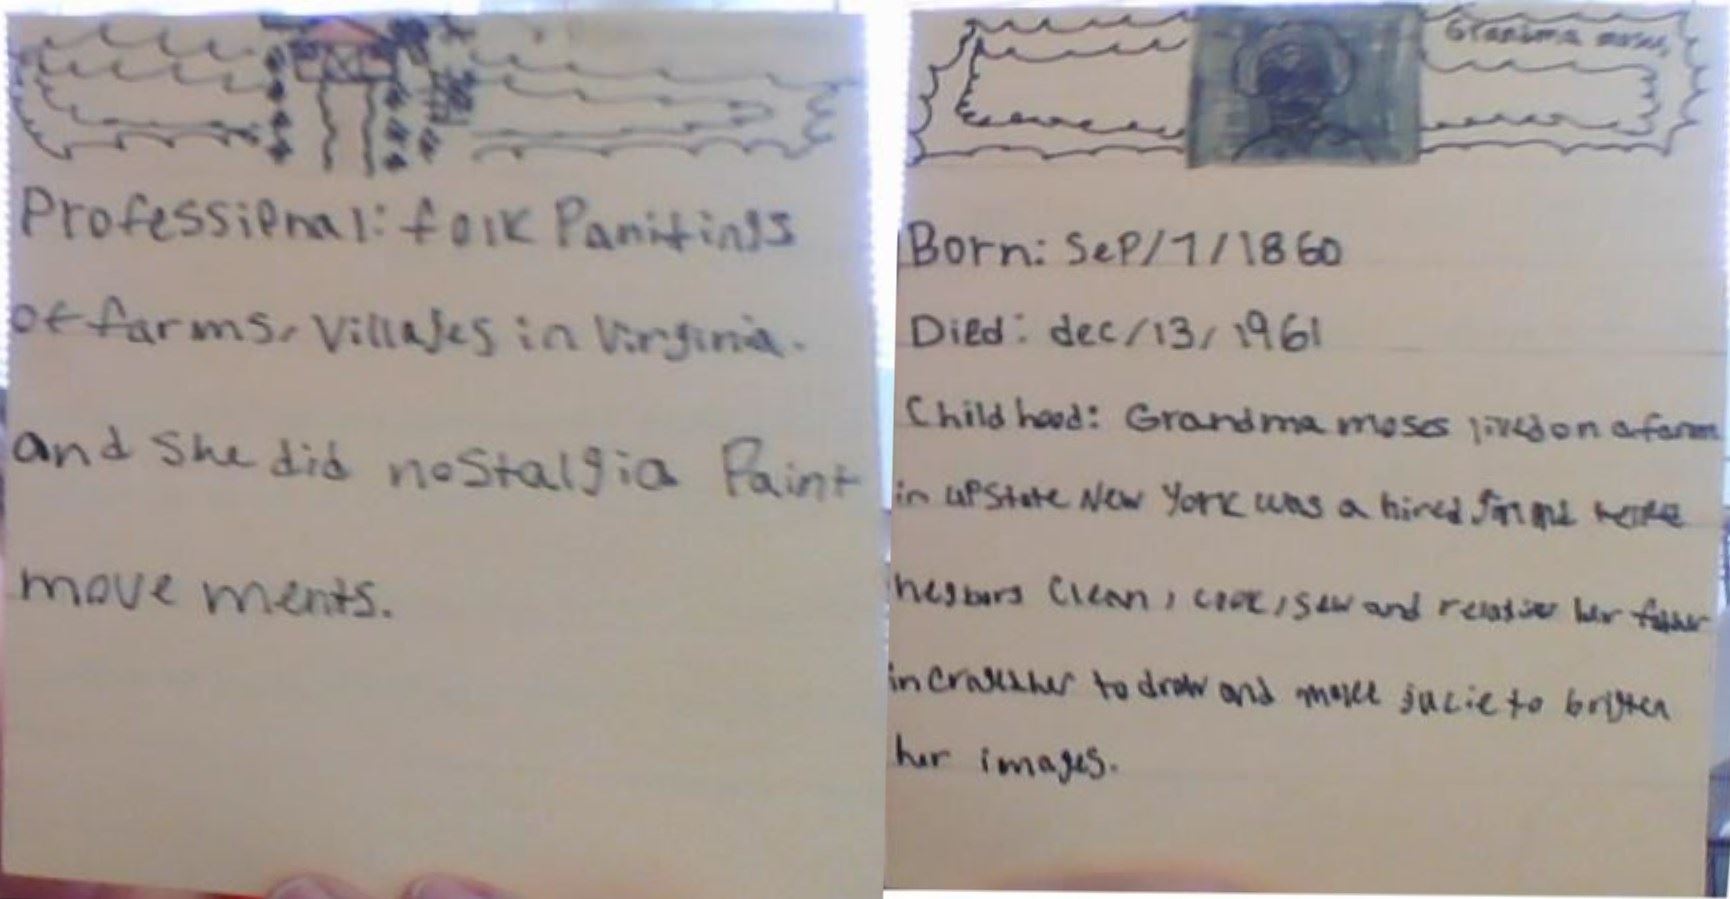 Professional: folk Panitings
of farms, Villages in Virginia.
and she did nostalgia Paint
move ments.
Grandma moses,
Born: SeP/7/1860
Died: dec/13/1961
Child hood: Grandma moses lived on a farm
in uPstate New York was a hired
negbors Clean, cook, sew and relative her father
to draw and jucie to brigten
her images.